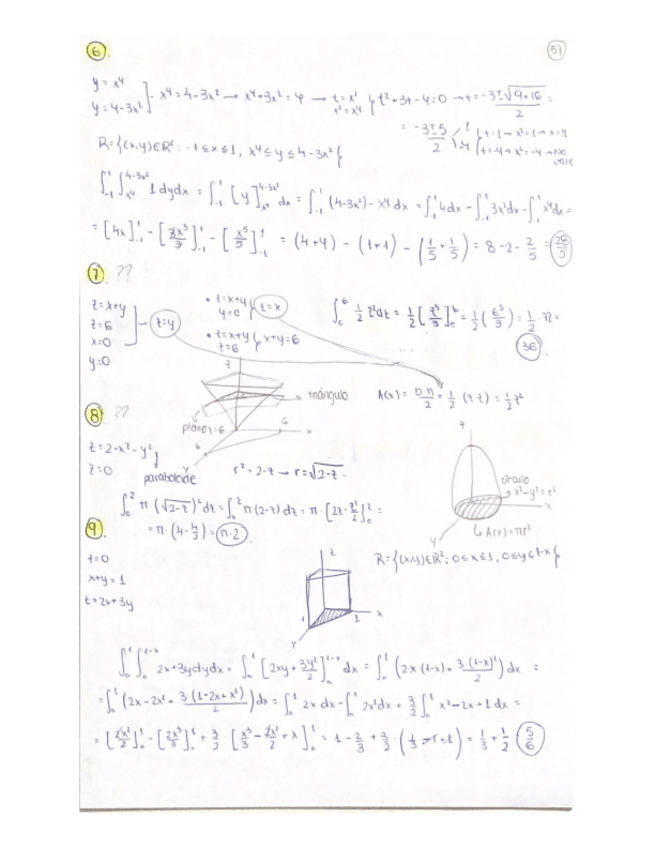 6. 57
y = x⁴
y = 4-3x² ] - x⁴ = 4-3x² → x⁴+3x² = 4 → t = x² t² = x⁴ { t²+3t-4=0 → t = -3±√(9+16) / 2 =
= -3±5 / 2 < 1 -4 { t=1 → x²=1 → x=±1
t=-4 → x²=-4 → No
R={(x,y)∈R²: -1≤x≤1, x⁴≤y≤4-3x²}
∫₋₁¹∫_{x⁴}^{4-3x²} 1 dydx = ∫₋₁¹ [y]_{x⁴}^{4-3x²} dx = ∫₋₁¹ (4-3x²)-x⁴ dx = ∫₋₁¹ 4dx - ∫₋₁¹ 3x²dx - ∫₋₁¹ x⁴dx =
= [4x]₋₁¹ - [3x³/3]₋₁¹ - [x⁵/5]₋₁¹ = (4+4) - (1+1) - (1/5 + 1/5) = 8-2-2/5 = 28/5
7. ??
z=x+y
z=6
x=0
y=0
z=y
• z=x+y y=0 } z=x
• z=x+y z=6 } x+y=6
∫₀⁶ 1/2 z² dz = 1/2 [z³/3]₀⁶ = 1/2 (6³/3) = 1/2 · 72 =
36
z
triángulo
A(x) = b·h/2 = 1/2 · (z·z) = 1/2 z²
plano z=6
6
x
6
y
8. ??
z=2-x²-y²
z=0
paraboloide
r²=2-z → r=√(2-z)
z
círculo
x²-y²=r²
x
y
A(x)=πr²
∫₀² π · (√(2-z))² dz = ∫₀² π (2-z) dz = π · [2z - z²/2]₀² =
= π · (4 - 4/2) = π·2
9.
z=0
x+y=1
z=2x+3y
R={(x,y)∈R²; 0≤x≤1, 0≤y≤1-x}
z
x
1
1
y
∫₀¹∫₀^{1-x} 2x+3y dydx = ∫₀¹ [2xy + 3y²/2]₀^{1-x} dx = ∫₀¹ (2x·(1-x) + 3(1-x)²/2) dx =
= ∫₀¹ (2x-2x² + 3(1-2x+x²)/2) dx = ∫₀¹ 2x dx - ∫₀¹ 2x²dx + 3/2 ∫₀¹ x²-2x+1 dx =
= [2x²/2]₀¹ - [2x³/3]₀¹ + 3/2 · [x³/3 - 2x²/2 + x]₀¹ = 1 - 2/3 + 3/2 · (1/3 - 1 + 1) = 1/3 + 1/2 5/6